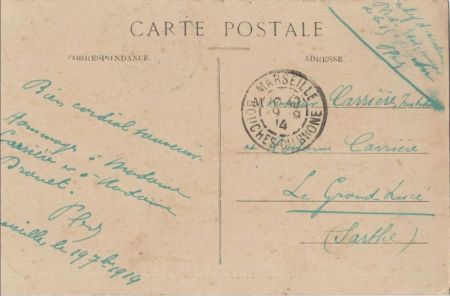 CARTE POSTALE
CORRESPONDANCE
ADRESSE
Bien cordial souvenir.
Hommages à Madame
Carrière et à Madame
Drouet.
le 19 7bre 1914
MARSEILLE
19 - 9
14
BOUCHES DU RHONE
Carrière,
et Madame Carrière
Le Grand Lucé
(Sarthe)